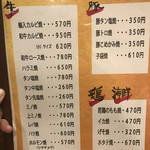 牛
輸入カルビ焼・・・570円
和牛カルビ焼・・・650円
620円
和牛ロース焼・・・780円
ハラミ焼・・・650円
タン塩焼・・・780円
タン塩焼・・・560円
ミノ焼・・・570円
上ミノ焼・・・780円
レバ焼・・・460円
ハツ焼・・・460円
ホルモン焼・・・560円
豚
豚タン塩焼・・・350円
豚トロ焼・・・350円
豚こめかみ焼・・・360円
子袋焼・・・610円
鶏 海鮮
若鶏のもも焼・・・470円
イカ焼・・・380円
エビ焼・・・350円
ホタテ焼・・・670円